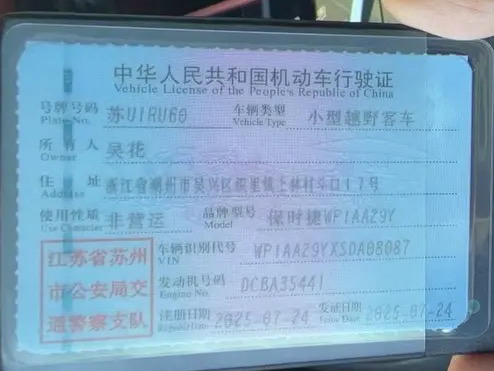 中华人民共和国机动车行驶证
Vehicle License of the People's Republic of China
号牌号码 苏U1RU60 车辆类型 小型越野客车
Plate No. Vehicle Type
所有人 吴花
Owner
住址 浙江省湖州市吴兴区织里镇上林村斗口17号
Address
使用性质 非营运 品牌型号 保时捷WP1AAZ9Y
Use Character Model
江苏省苏州
市公安局交
通警察支队
车辆识别代号 WP1AAZ9YXSDA08087
VIN
发动机号码 DCBA35441
Engine No.
注册日期 2025-07-24 发证日期 2025-07-24
Register Date Issue Date